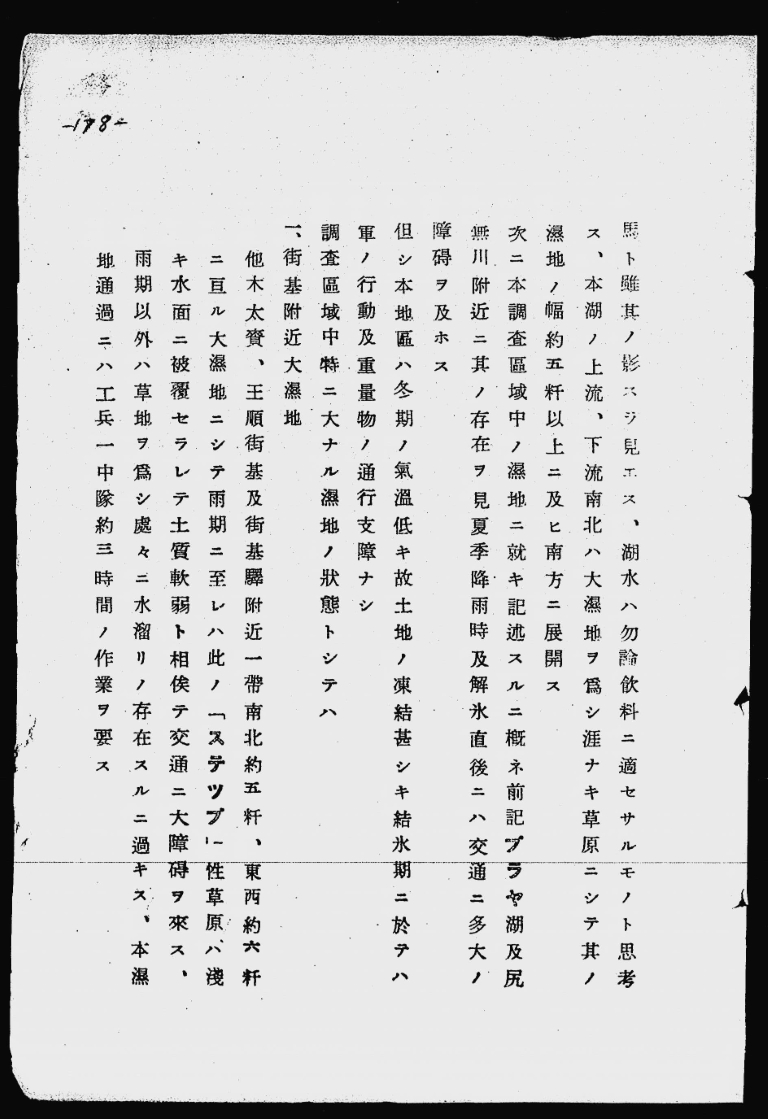 -178-
馬ト雖其ノ影スラ見エス、湖水ハ勿論飮料ニ適セサルモノト思考
ス、本湖ノ上流、下流南北ハ大濕地ヲ爲シ涯ナキ草原ニシテ其ノ
濕地ノ幅約五粁以上ニ及ヒ南方ニ展開ス
次ニ本調査區域中ノ濕地ニ就キ記述スルニ槪ネ前記プラヤ湖及尻
無川附近ニ其ノ存在ヲ見夏季降雨時及解氷直後ニハ交通ニ多大ノ
障碍ヲ及ホス
但シ本地區ハ冬期ノ氣溫低キ故土地ノ凍結甚シキ結氷期ニ於テハ
軍ノ行動及重量物ノ通行支障ナシ
調査區域中特ニ大ナル濕地ノ狀態トシテハ
一、街基附近大濕地
他木太賚、王順街基及街基驛附近一帶南北約五粁、東西約六粁
ニ亘ル大濕地ニシテ雨期ニ至レハ此ノ「ステツプ」性草原ハ淺
キ水面ニ被覆セラレテ土質軟弱ト相俟テ交通ニ大障碍ヲ來ス、
雨期以外ハ草地ヲ爲シ處々ニ水溜リノ存在スルニ過キス、本濕
地通過ニハ工兵一中隊約三時間ノ作業ヲ要ス